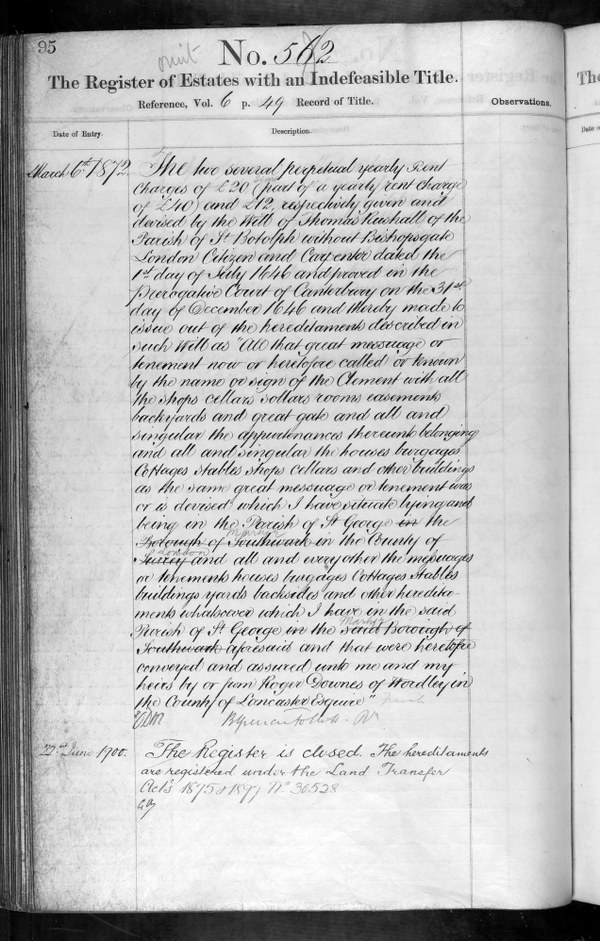 95
No. 562
The Register of Estates with an Indefeasible Title.
Reference, Vol. 6 p. 49 Record of Title.
Observations.
Date of Entry.
Description.
March 6th 1872.
The two several perpetual yearly Rent
Charges of £20 (part of a yearly rent charge
of £40) and £12, respectively given and
devised by the Will of Thomas Rushall of the
Parish of St Botolph without Bishopsgate
London Citizen and Carpenter dated the
1st day of July 1646 and proved in the
Prerogative Court of Canterbury on the 31st
day of December 1646 and thereby made to
issue out of the hereditaments described in
such Will as "All that great messuage or
tenement now or heretofore called or known
by the name or sign of the Clement with all
the shops cellars sollars rooms easements
backyards and great gate and all and
singular the appurtenances thereunto belonging
and all and singular the houses burgages
Cottages Stables shops cellars and other buildings
as the same great messuage or tenement was
or is devised which I have situate lying and
being in the Parish of St George in the
Martyr
Borough of Southwark in the County of
London
Surrey and all and every other the messuages
or tenements houses burgages Cottages Stables
buildings yards backsides and other heredita-
ments whatsoever which I have in the said
Martyr
Parish of St George in the said Borough of
Southwark aforesaid and that were heretofore
conveyed and assured unto me and my
heirs by or from Roger Downes of Wordley in
the County of Lancaster Esquire"
22nd June 1900.
The Register is closed. The hereditaments
are registered under the Land Transfer
Acts 1875 & 1897 No 36528